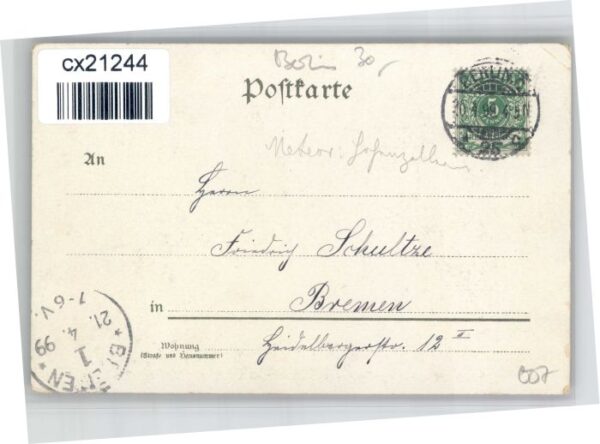 cx21244
Berlin 30,-
Postkarte
BERLIN
25
Meteor: Hohenzollern
An
Herrn
Friedrich Schultze
in Bremen
Wohnung
(Straße und Hausnummer)
Heidelbergerstr. 12 II
BREMEN
1
21. 4. 99
1-6 V.